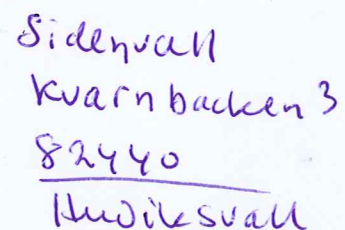 Sidenvall
Kvarnbacken 3
82440
Hudiksvall